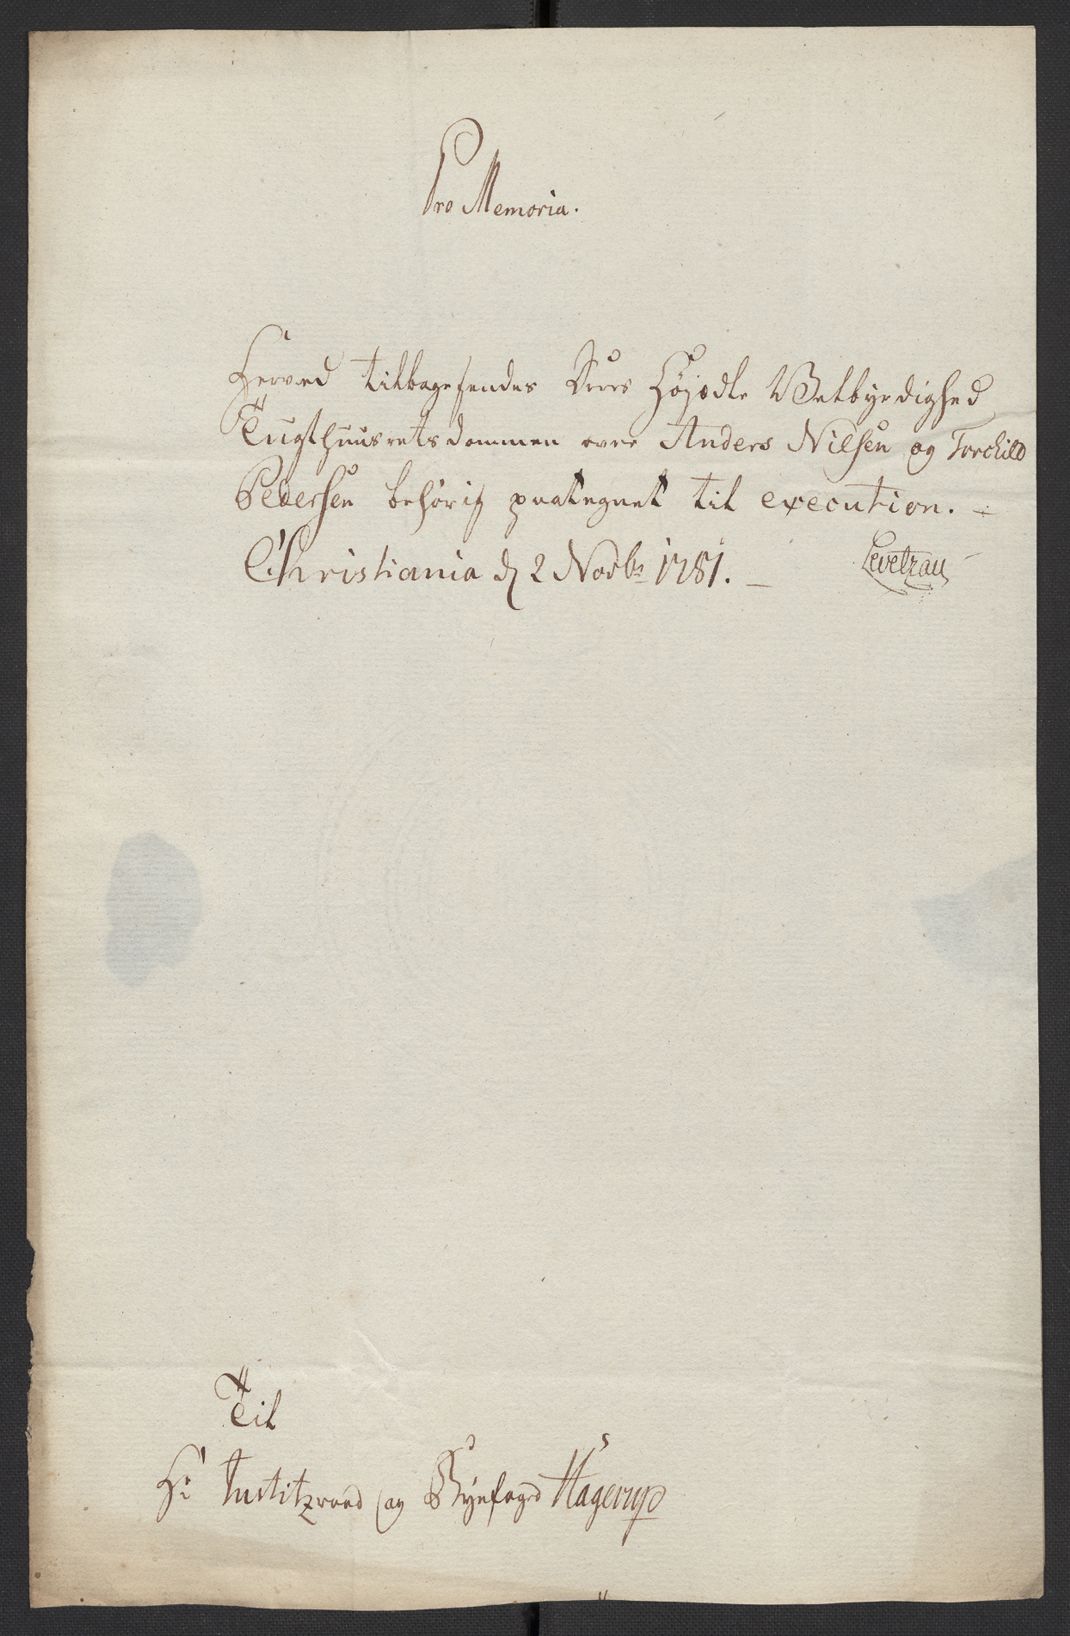 Pro Memoria.
Herved tilbagesendes Deres Höjædle Velbyrdighed
Tugthuusrets Dommen over Anders Nilsen og Torchild
Pedersen behörig paategnet til execution. -
Christiania d 2 Novbr 1781. -
Levetzau
Til
Hr Justitzraad og Byefoged Hagerup